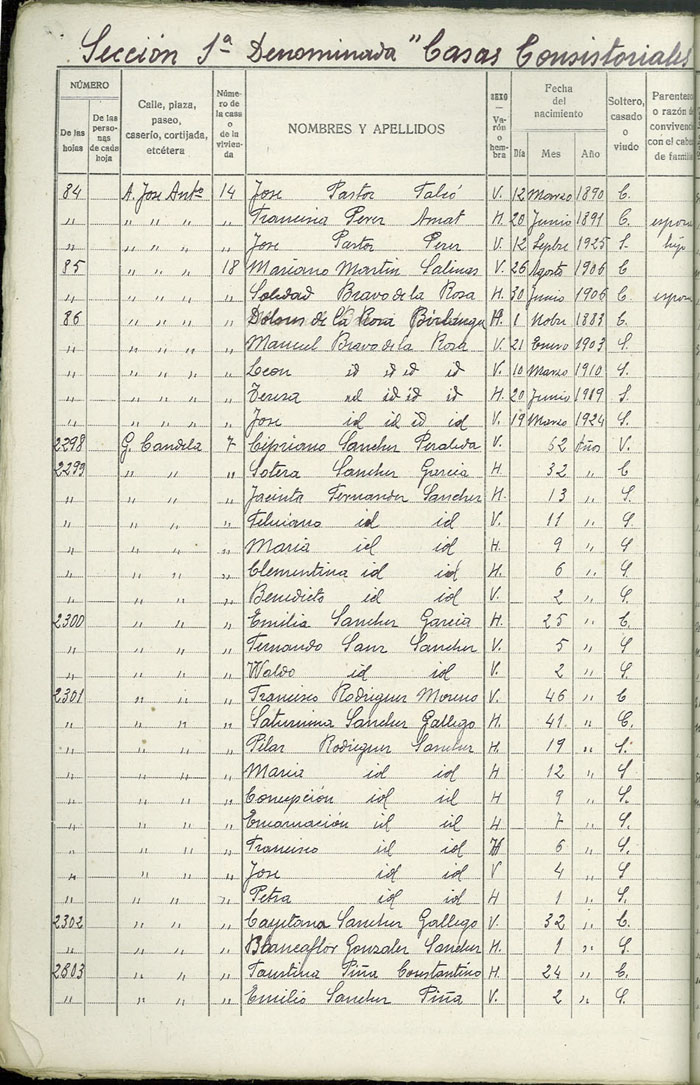 Sección 1ª Denominada "Casas Consistoriales
NÚMERO
De las hojas
De las personas de cada hoja
Calle, plaza, paseo, caserío, cortijada, etcétera
Número de la casa o de la vivienda
NOMBRES Y APELLIDOS
SEXO - Varón o hembra
Fecha del nacimiento
Día Mes Año
Soltero, casado o viudo
Parentes o razón de convivenc con el cabe de familia
84 A. Jose Antº 14 Jose Pastor V. 12 Marzo 1890 C.
" " " " " Francisca Perez Amat H. 20 Junio 1891 C. espos
" " " " " Jose Pastor Perez V. 12 Sepbre 1925 S. hijo
85 " " " 18 Mariano Martin Salinas V. 26 Agosto 1906 C
" " " " " Soledad Bravo de la Rosa H. 30 Junio 1906 C. espos
86 " " " " Dolores de la Rosa H. 1 Nobre 1883 C.
" " " " " Manuel Bravo de la Rosa V. 21 Enero 1903 S.
" " " " " Leon id id id id V. 10 Marzo 1910 S.
" " " " " Teresa id id id id H. 20 Junio S.
" " " " " Jose id id id id V. 19 Marzo 1924 S.
2298 G. Candela 7 Cipriano Sanchez V. 62 Año V.
2299 " " " Sotera Sanchez Garcia H. 32 " C
" " " " Jacinta Fernandez Sanchez H. 13 " S.
" " " " Feliciano id id V. 11 " S.
" " " " Maria id id H. 9 " S
" " " " Clementina id id H. 6 " S.
" " " " Benedicto id id V. 2 " S.
2300 " " " Emilia Sanchez Garcia H. 25 " C.
" " " " Fernando Sanz Sanchez V. 5 " S.
" " " " Waldo id id V. 2 " S.
2301 " " " Francisco Rodriguez Moreno V. 46 " C
" " " " Saturnina Sanchez Gallego H. 41 " C.
" " " " Pilar Rodriguez Sanchez H. 19 " S.
" " " " Maria id id H 12 " S
" " " " Concepción id id H 9 " S.
" " " " Encarnación id id H 7 " S.
" " " " Francisco id id 6 " S.
" " " " Jose id id V 4 " S
" " " " Petra id id H 1 " S.
2302 " " " Cayetana Sanchez Gallego V. 32 " C.
" " " " Blancaflor Gonzalez Sanchez H. 1 " S
2303 " " " Faustina Piña Constantino H. 24 " C.
" " " " Emilio Sanchez Piña V. 2 " S.